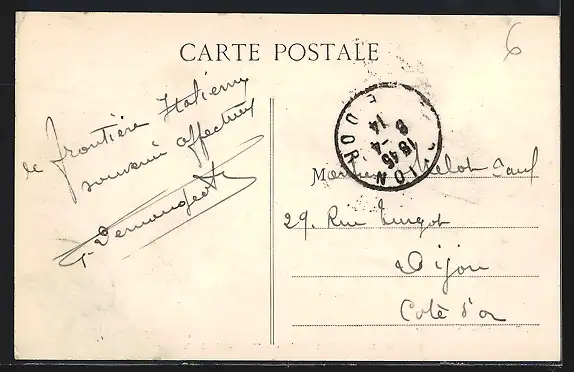 CARTE POSTALE
6
de frontière Italienne
souvenir affectueux
G Demongeot
DIJON
COTE D'OR
15 45
8 -4
14
Monsieur Melot
29. Rue Turgot
Dijon
Côte d'or